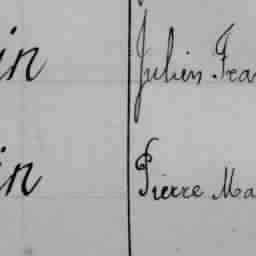 in Julien Fra
in Pierre Ma